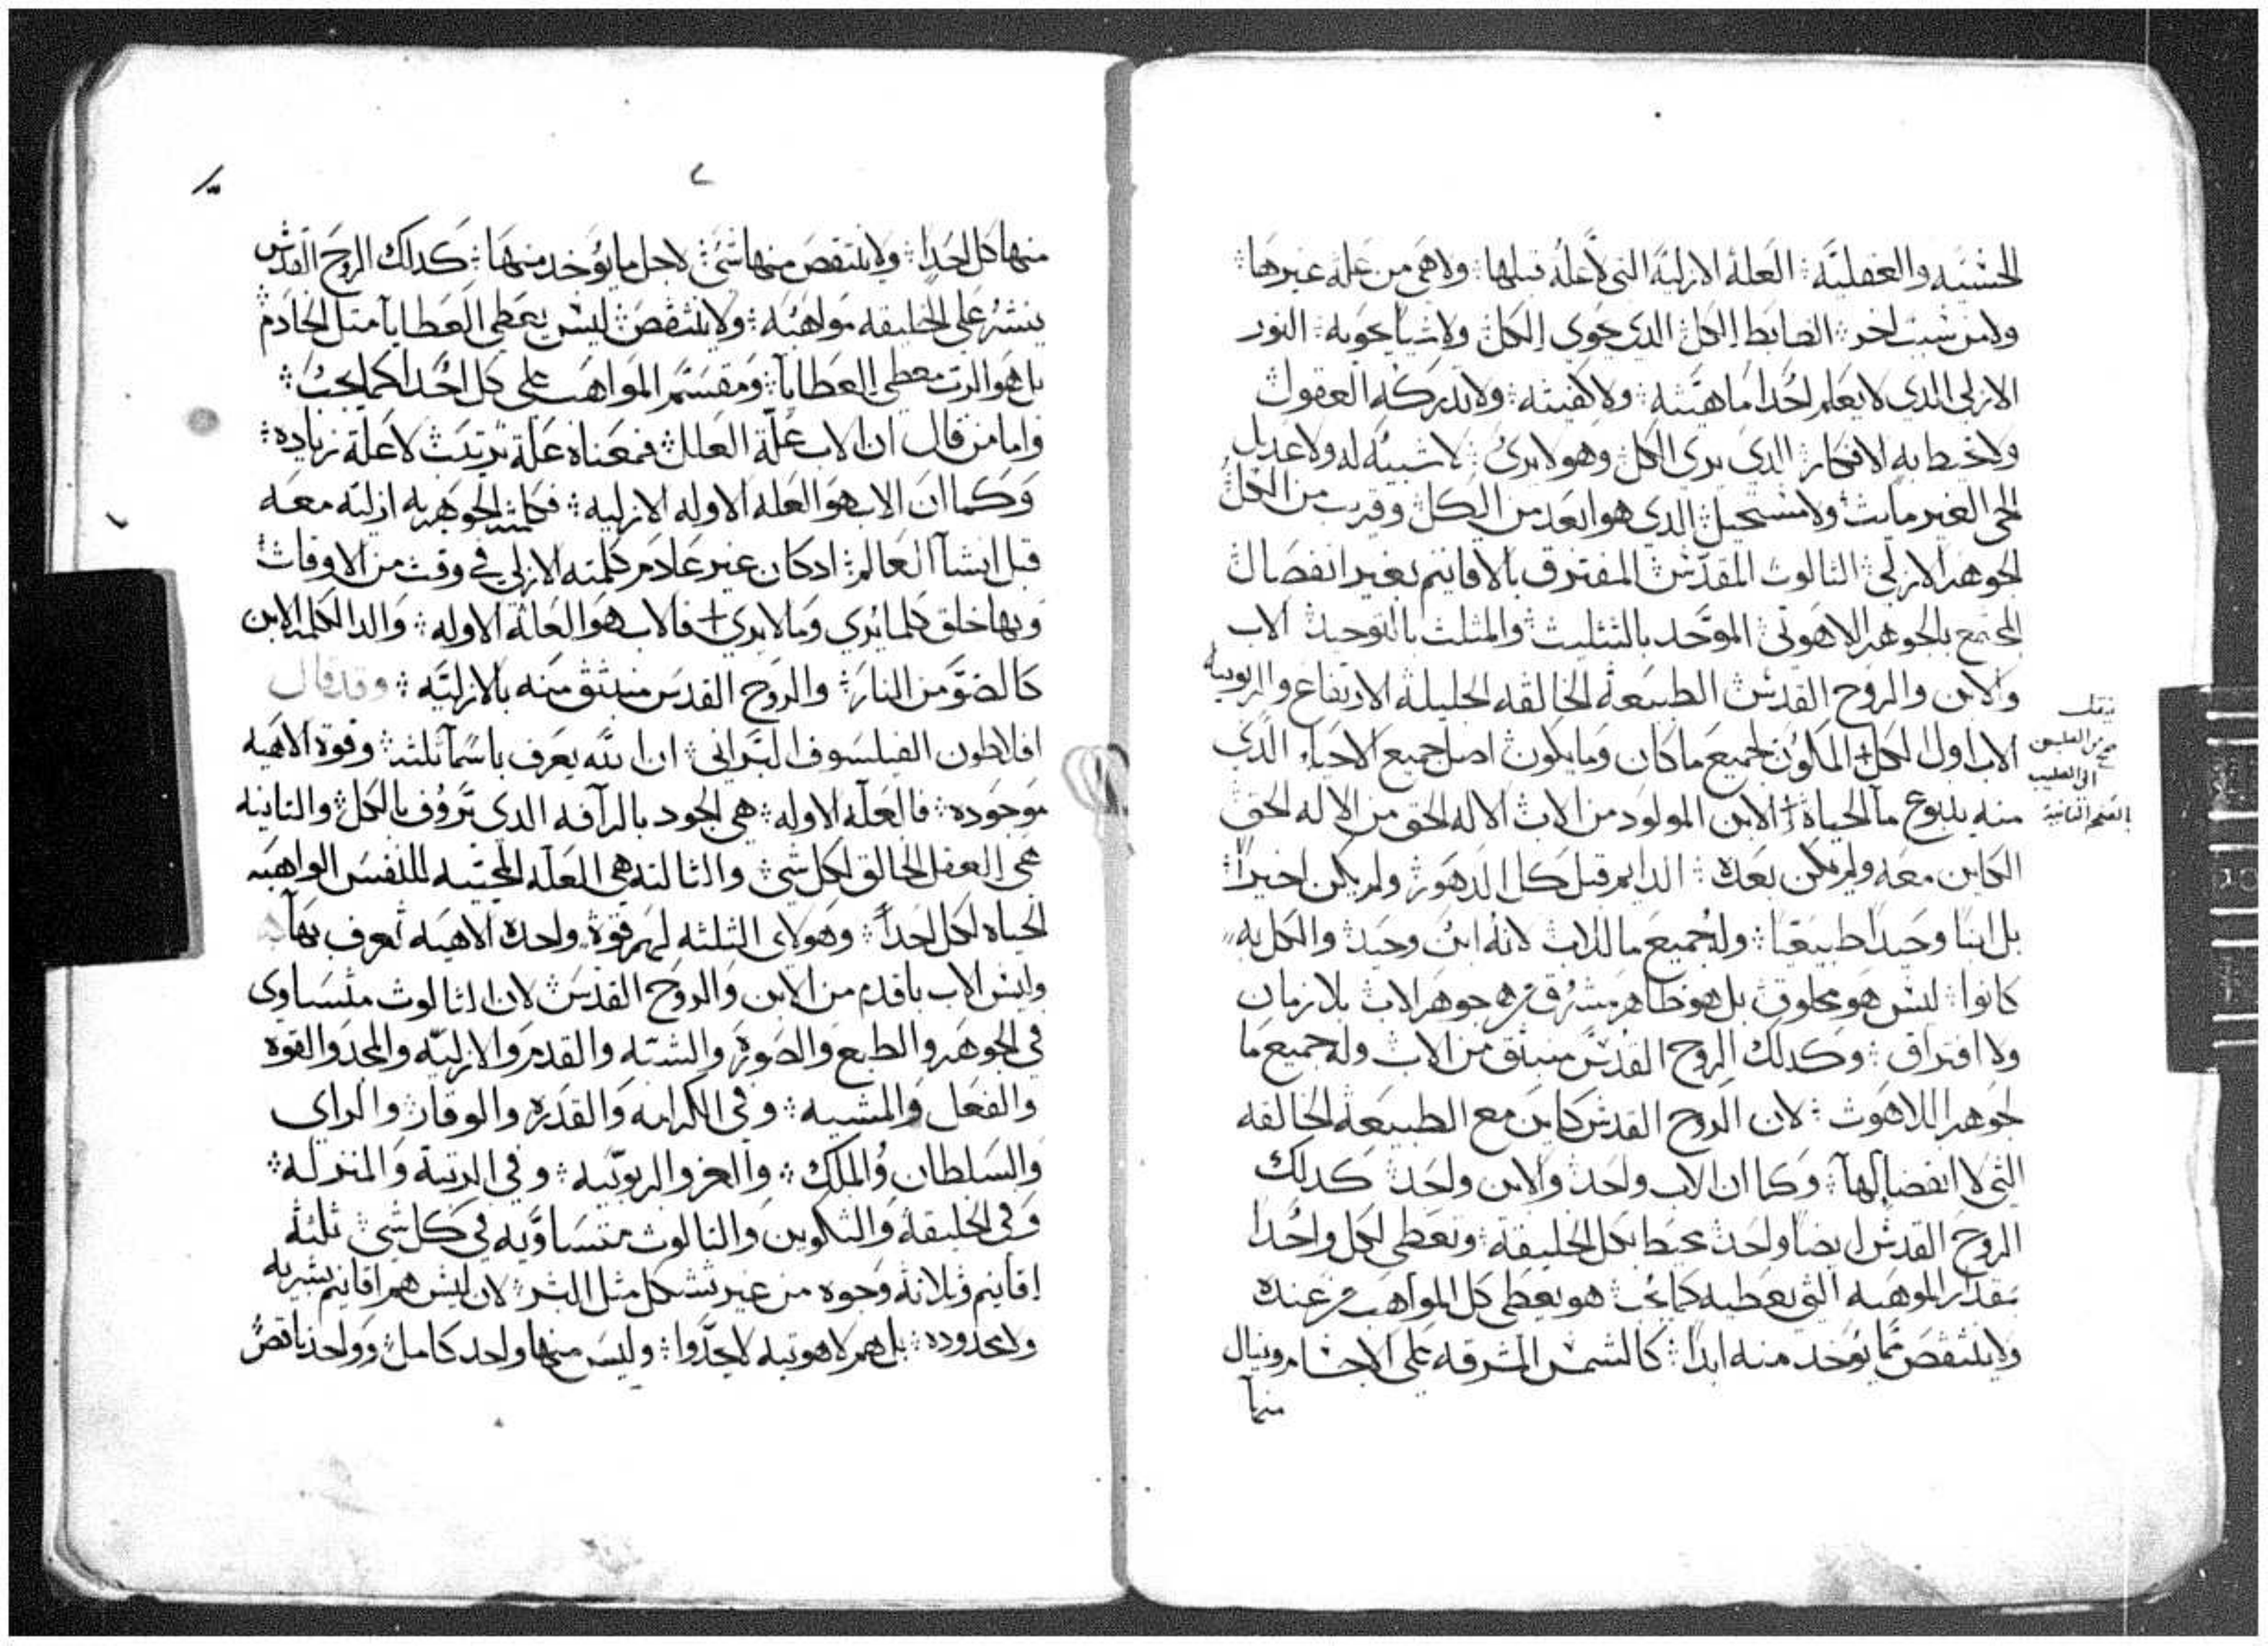 الحسيه والعقليه : العله الازليه التى لا عله قبلها : ولا هى من عله غيرها :
ولا من سبب اخر : الضابط الكل الدى حوى الكل ولا شيا يحويه : النور
الازلى الدى لا يعلم احدا ماهيته ولا كيفيته : ولا تدركه العقول
ولا تحيط به الافكار الدى يرى الكل وهو لا يرى : لا شبيه له ولا عديل
الحى الغير مايت ولا مستحيل الدى هو ابعد من الكل وقريب من الكل
الجوهر الازلى الثالوث المقدس المفترق بالاقانيم بغير انفصال
المجتمع بالجوهر الاهوتى الموحد بالتثليث والمثلث بالتوحيد الاب
والابن والروح القدس الطبيعه الخالقه الجليله الارتفاع والربوبيه
الاب اول الكل + المكون لجميع ما كان وما يكون اصل جميع الاحياء الدى
منه ينبوع ما الحياه + الابن المولود من الاب الاله الحق من الاله الحق
الكاين معه ولم يكن بعده : الدايم قبل كل الدهور ولم يكن اخيرا :
بل ابنا وحيدا طبيعيا : وله جميع ما للاب لانه ابن وحيد والكل به
كانوا : ليس هو مخلوق بل هو ظاهر مشرق من جوهر الاب بلا زمان
ولا افتراق : وكدلك الروح القدس منبثق من الاب وله جميع ما
لجوهر اللاهوت : لان الروح القدس كاين مع الطبيعه الخالقه
التى لا انفصال لها : وكما ان الاب واحد والابن واحد كدلك
الروح القدس ايضا واحد محيط بكل الخليقه وتعطى لكل واحدا
بمقدار الموهبه التى يعطيه كما يحب هو يعطى كل المواهب من عنده
ولا ينتقص مما يوخد منه ابدا : كالشمس المشرقه على الاجسام وينال
منها
ينقل
من الصليب
الى الصليب
الصفحه الثانيه
٢
منها كل احدا : ولا ينتقص منها شى لاجل ما يوخد منها : كدلك الروح القدس
ينشر على الخليقه مواهبه : ولا ينتقص ليس يعطى العطايا مثل الخادم
بل هو الرب معطى العطايا : ومقسم المواهب على كل احدا كما يحب :
واما من قال ان الاب عله العلل فمعناه عله ترتيب لا عله زياده :
وكما ان الاب هو العله الاوله الازليه : فكلمته الجوهريه ازليه معه
قبل انشا العالم : ادكان غير عادم كلمته الازلى فى وقت من الاوقات
وبها خلق كلما يرى وما لا يرى + فالاب هو العله الاوله : والد الكلمه الابن
كالضو من النار : والروح القدس منبثق منه بالازليه : وقد قال
افلاطون الفيلسوف البرانى : ان الله يعرف باسما ثلثه وقوه الاهيه
موجوده : فالعله الاوله : هى الجود بالرافه الدى تروف بالكل والثانيه
هى العقل الخالق لكل شى والثالثه هى العله المحييه للنفس الواهبه
الحياه لكل احدا : وهولاى الثلثه لهم قوه واحده الاهيه تعرف بها
وليس الاب باقدم من الابن والروح القدس لان الثالوث متساوى
فى الجوهر والطبع والصوره والشبه والقدم والازليه والمجد والقوه
والفعل والمشيه : وفى الكرامه والقدره والوقار والراى
والسلطان والملك : والعز والربوبيه : وفى الرتبه والمنزله :
وفى الخليقه والتكوين والثالوث متساويه فى كل شى ثلثه
اقانيم وثلاثه وجوه من غير تشكل مثل البشر : لان ليس هم اقانيم بشريه
ولا محدوده : بل هم لاهوتيه لا يحدوا : وليس منها واحد كامل وواحد ناقص